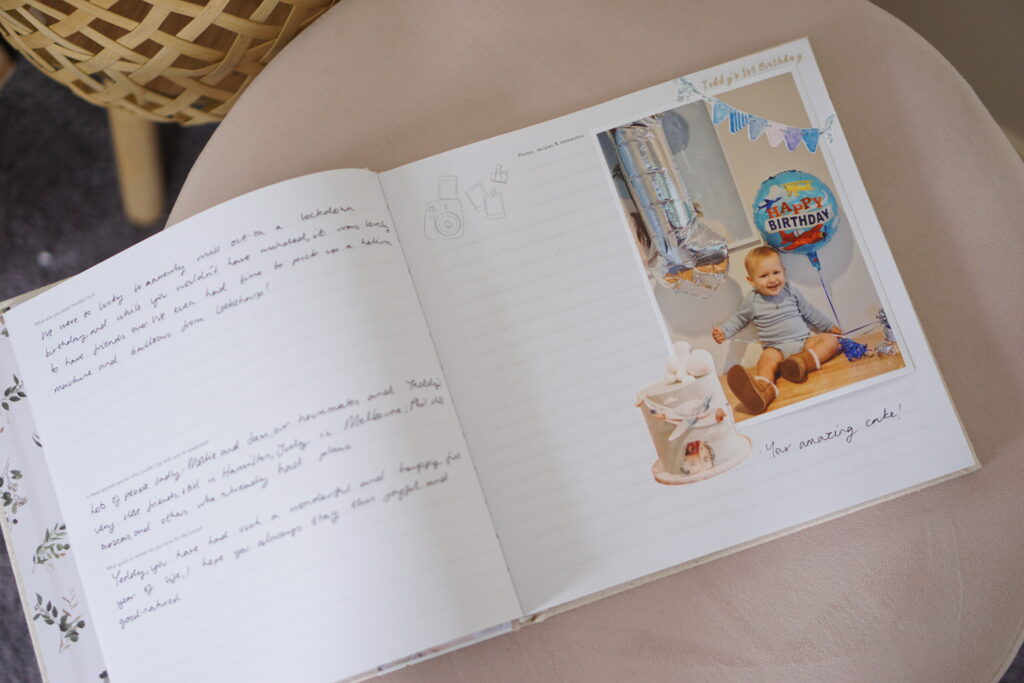 What are you most thankful for?
We were so lucky to narrowly miss out on a lockdown
birthday, and while you wouldn't have minded, it was lovely
to have friends over. We even had time to pick up a helium
machine and balloons from
Is there anyone special who couldn't be with you to celebrate?
Lots of people sadly. and Sam, our housemates and Teddy's
very close friends, still in Hamilton, Judy in Melbourne, Phil o/s
overseas, and others who already had plans
What goals or wishes do you have for the future?
Teddy, you have had such a wonderful and happy first
year of life, I hope you always stay this joyful and
good-natured
Photos, recipes & mementos
Teddy's 1st Birthday
HAPPY
BIRTHDAY
- Your amazing cake!